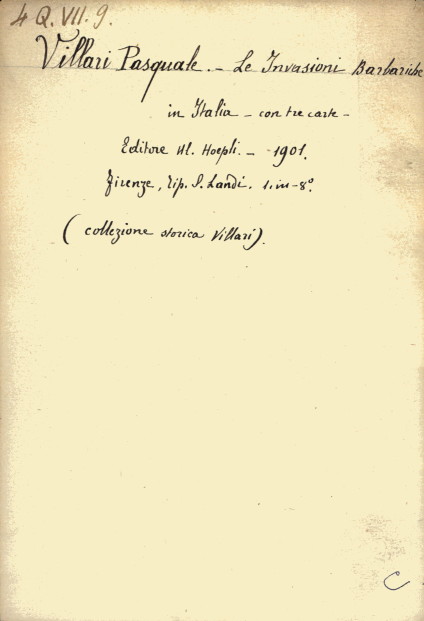 4 Q. VII. 9.
Villari Pasquale. - Le Invasioni Barbariche
in Italia - con tre carte -
Editore U. Hoepli. - 1901.
Firenze, tip. S. Landi. 1. in-8°.
(collezione storica Villari).
C